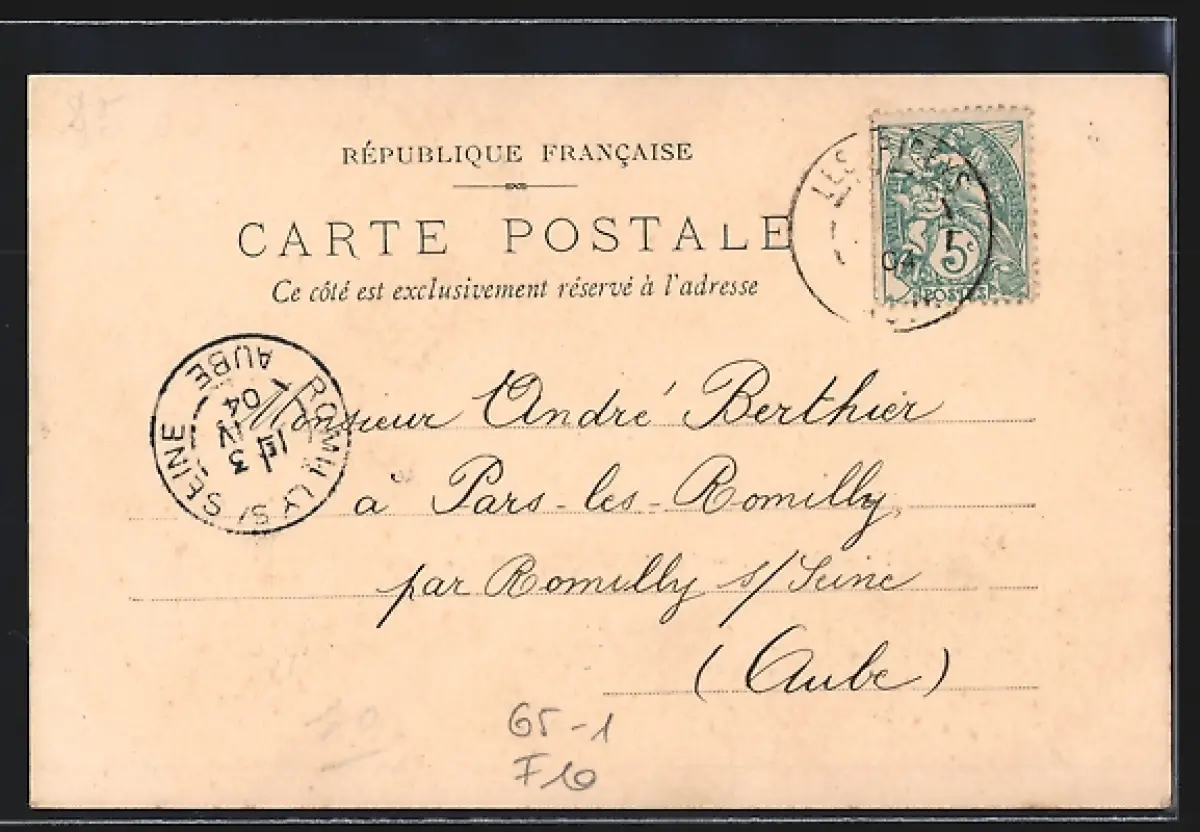 RÉPUBLIQUE FRANÇAISE
CARTE POSTALE
Ce côté est exclusivement réservé à l'adresse
LES
04
5c
POSTES
ROMILLY S/ SEINE
AUBE
1E
3
IV
04
Monsieur André Berthier
à Pars-les-Romilly
par Romilly s/Seine
(Aube)
65-1
F10